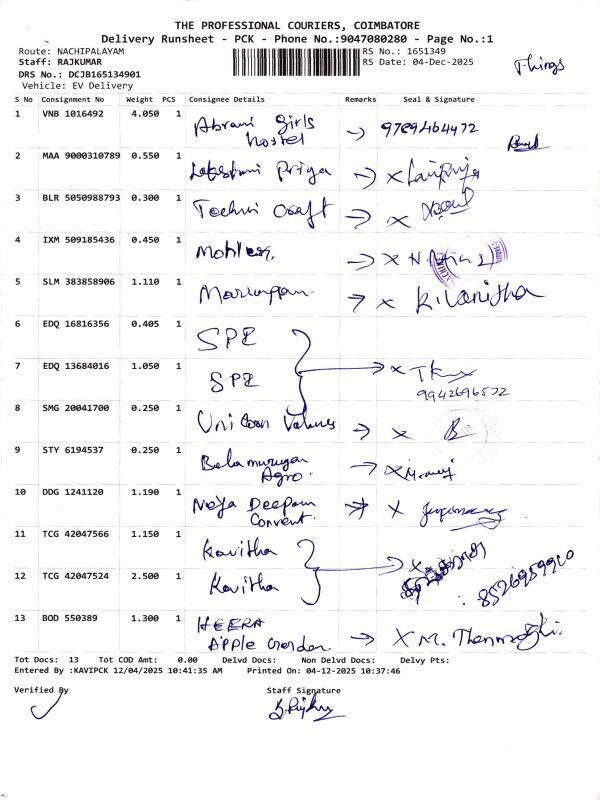 THE PROFESSIONAL COURIERS, COIMBATORE
Delivery Runsheet - PCK - Phone No.:9047080280 - Page No.:1
Route: NACHIPALAYAM RS No.: 1651349
Staff: RAJKUMAR RS Date: 04-Dec-2025
Things
DRS No.: DCJB165134901
Vehicle: EV Delivery
S No Consignment No Weight PCS Consignee Details Remarks Seal & Signature
1 VNB 1016492 4.050 1 Abrami Girls
hostel → 9789464472
2 MAA 9000310789 0.550 1 Lakshmi Priya →
3 BLR 5050988793 0.300 1 Techni Craft → x
4 IXM 509185436 0.450 1 →
5 SLM 383858906 1.110 1 → x K. Vanitha
6 EDQ 16816356 0.405 1 SPE
7 EDQ 13684016 1.050 1 SPE → x
9942696572
8 SMG 20041700 0.250 1 → x
9 STY 6194537 0.250 1 Balamurugan
Agro. → x
10 DDG 1241120 1.190 1 Deepam
Convent. → x
11 TCG 42047566 1.150 1 Kavitha
12 TCG 42047524 2.500 1 Kavitha → x
8526959910
13 BOD 550389 1.300 1 HEERA
Apple Garden → x M.
Tot Docs: 13 Tot COD Amt: 0.00 Delvd Docs: Non Delvd Docs: Delvy Pts:
Entered By :KAVIPCK 12/04/2025 10:41:35 AM Printed On: 04-12-2025 10:37:46
Verified By Staff Signature